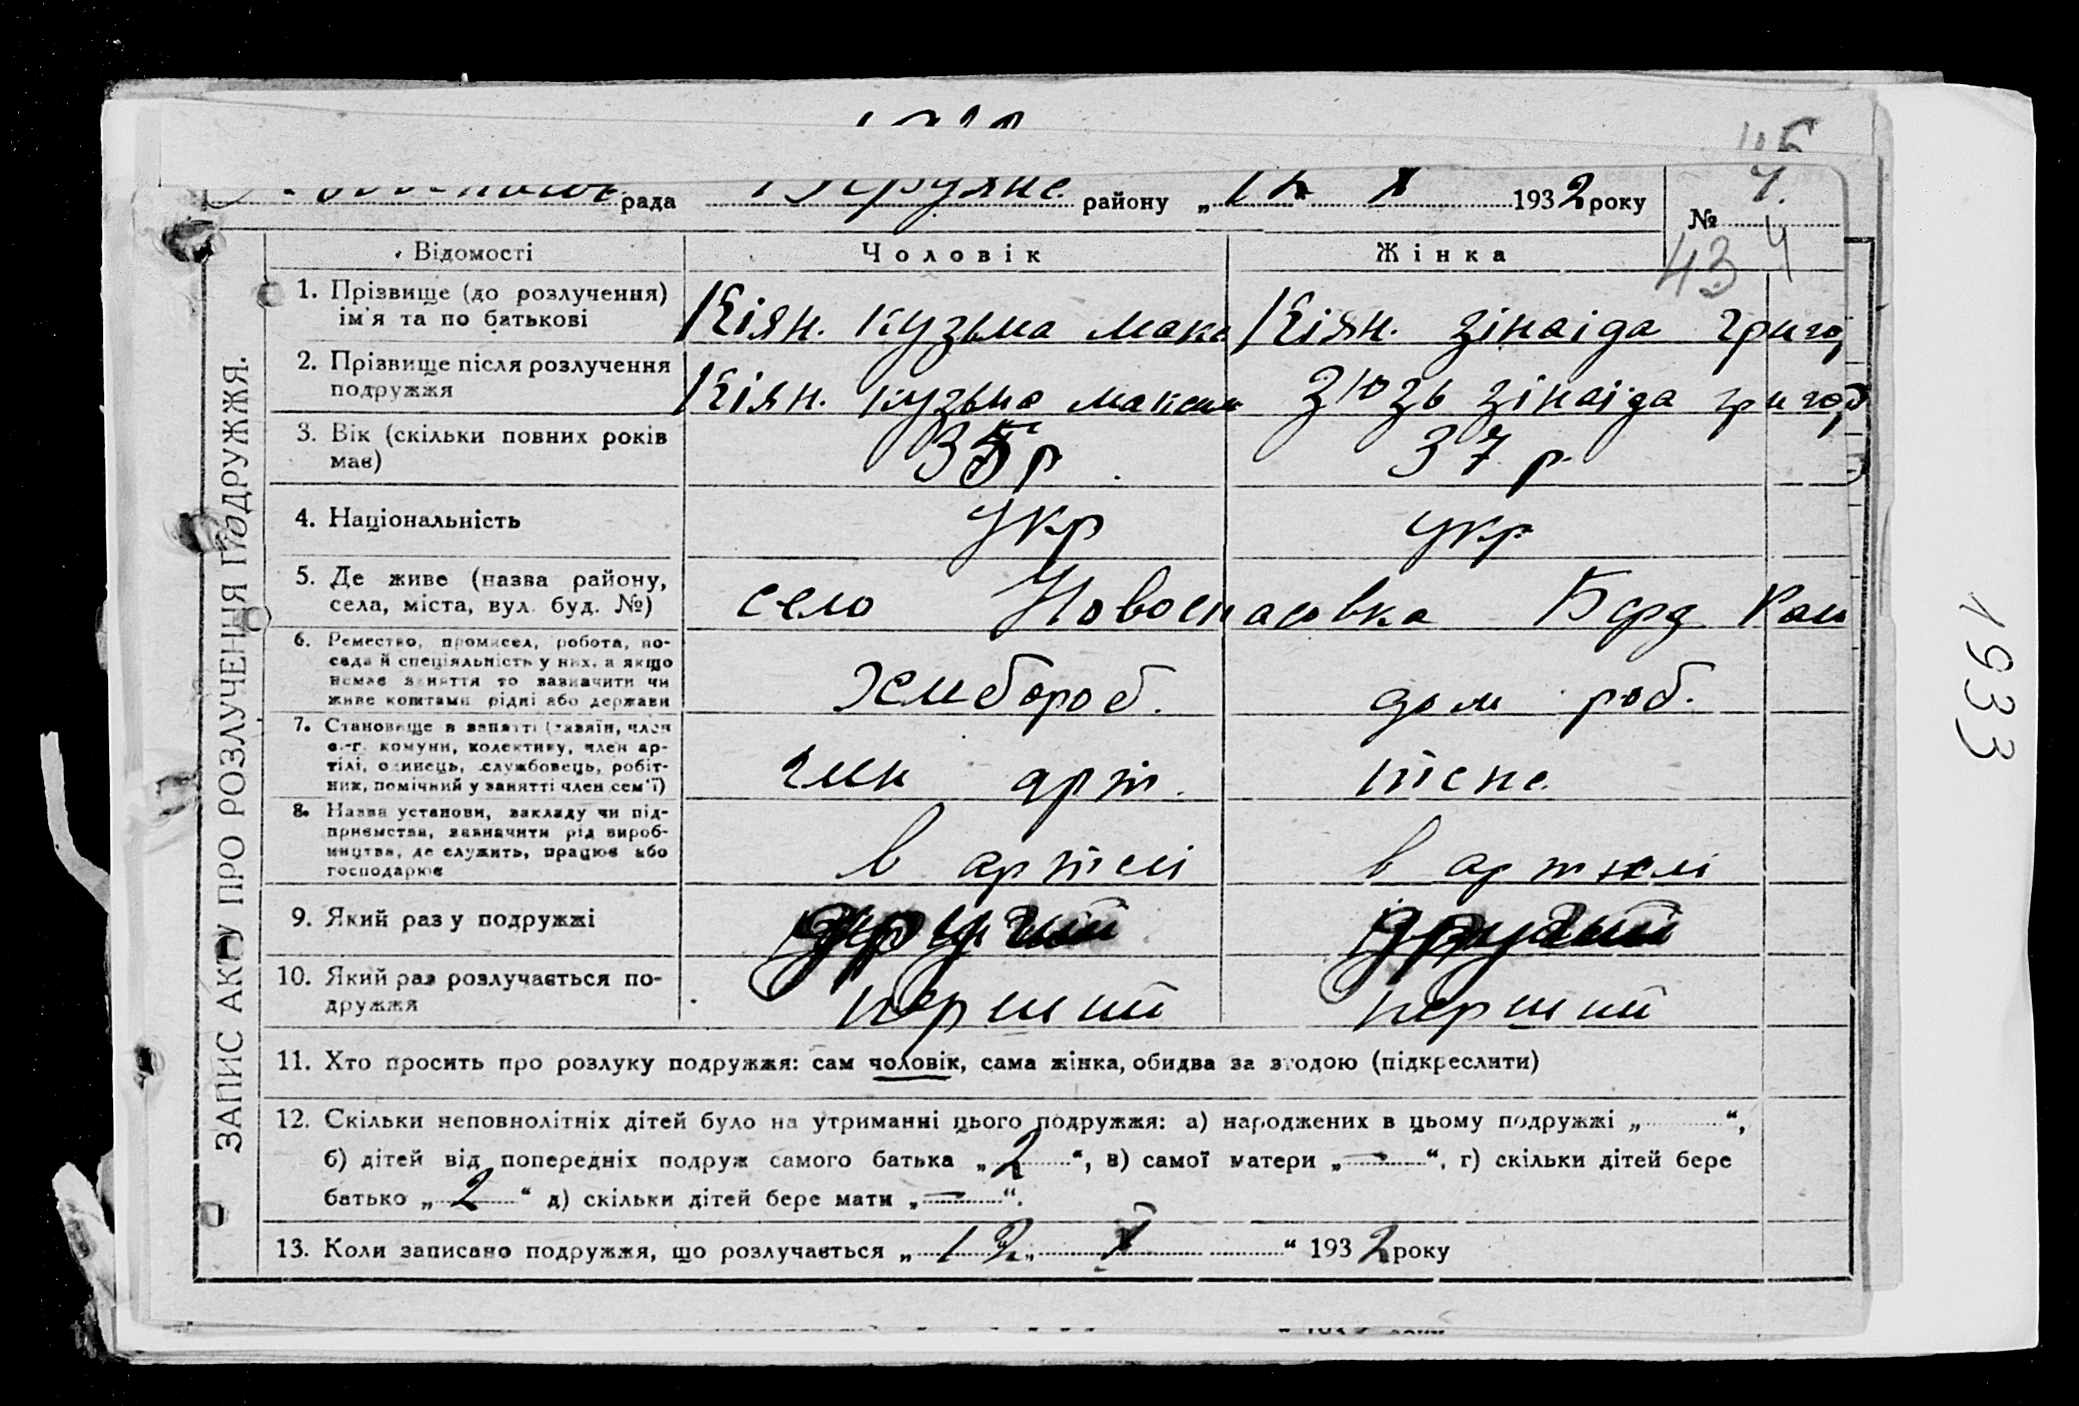 рада района „12 X 1932 року №
43
Відомості Чоловік Жінка
1. Прізвище (до розлучення) ім'я та по батькові
Кіян. кузьма макс Кіян. зінаіда григор
2. Прізвище після розлучення подружжя
Кіян. кузьма максим Зюзь зінаіда григор
3. Вік (скільки повних років має)
35 р. 37 р.
4. Національність
Укр укр
5. Де живе (назва району, села, міста, вул. буд. №)
село Новоспасовка Берд
6. Ремество, промисел, робота, посада й спеціяльність у них, а якщо немає заняття то зазначити чи живе коштами рідні або держави
Хлибороб. дом роб.
7. Становище в занятті (хазяїн, член с.-г. комуни, колективу, член артілі, одинець, службовець, робітник, помічний у занятті член сем'ї)
член арт.
8. Назва установи, закладу чи підприємства, зазначити рід виробництва, де служить, працює або господарює
в артелі в артелі
9. Який раз у подружжі
другий другий
10. Який раз розлучається подружжя
перший перший
11. Хто просить про розлуку подружжя: сам чоловік, сама жінка, обидва за згодою (підкреслити)
12. Скільки неповнолітніх дітей було на утриманні цього подружжя: а) народжених в цьому подружжі „ “,
б) дітей від попередніх подруж самого батька „2“, в) самої матери „—“, г) скільки дітей бере
батько „2“ д) скільки дітей бере мати „—“.
13. Коли записано подружжя, що розлучається „12„ X “ 1932 року
ЗАПИС АКТУ ПРО РОЗЛУЧЕННЯ ПОДРУЖЖЯ.
1933